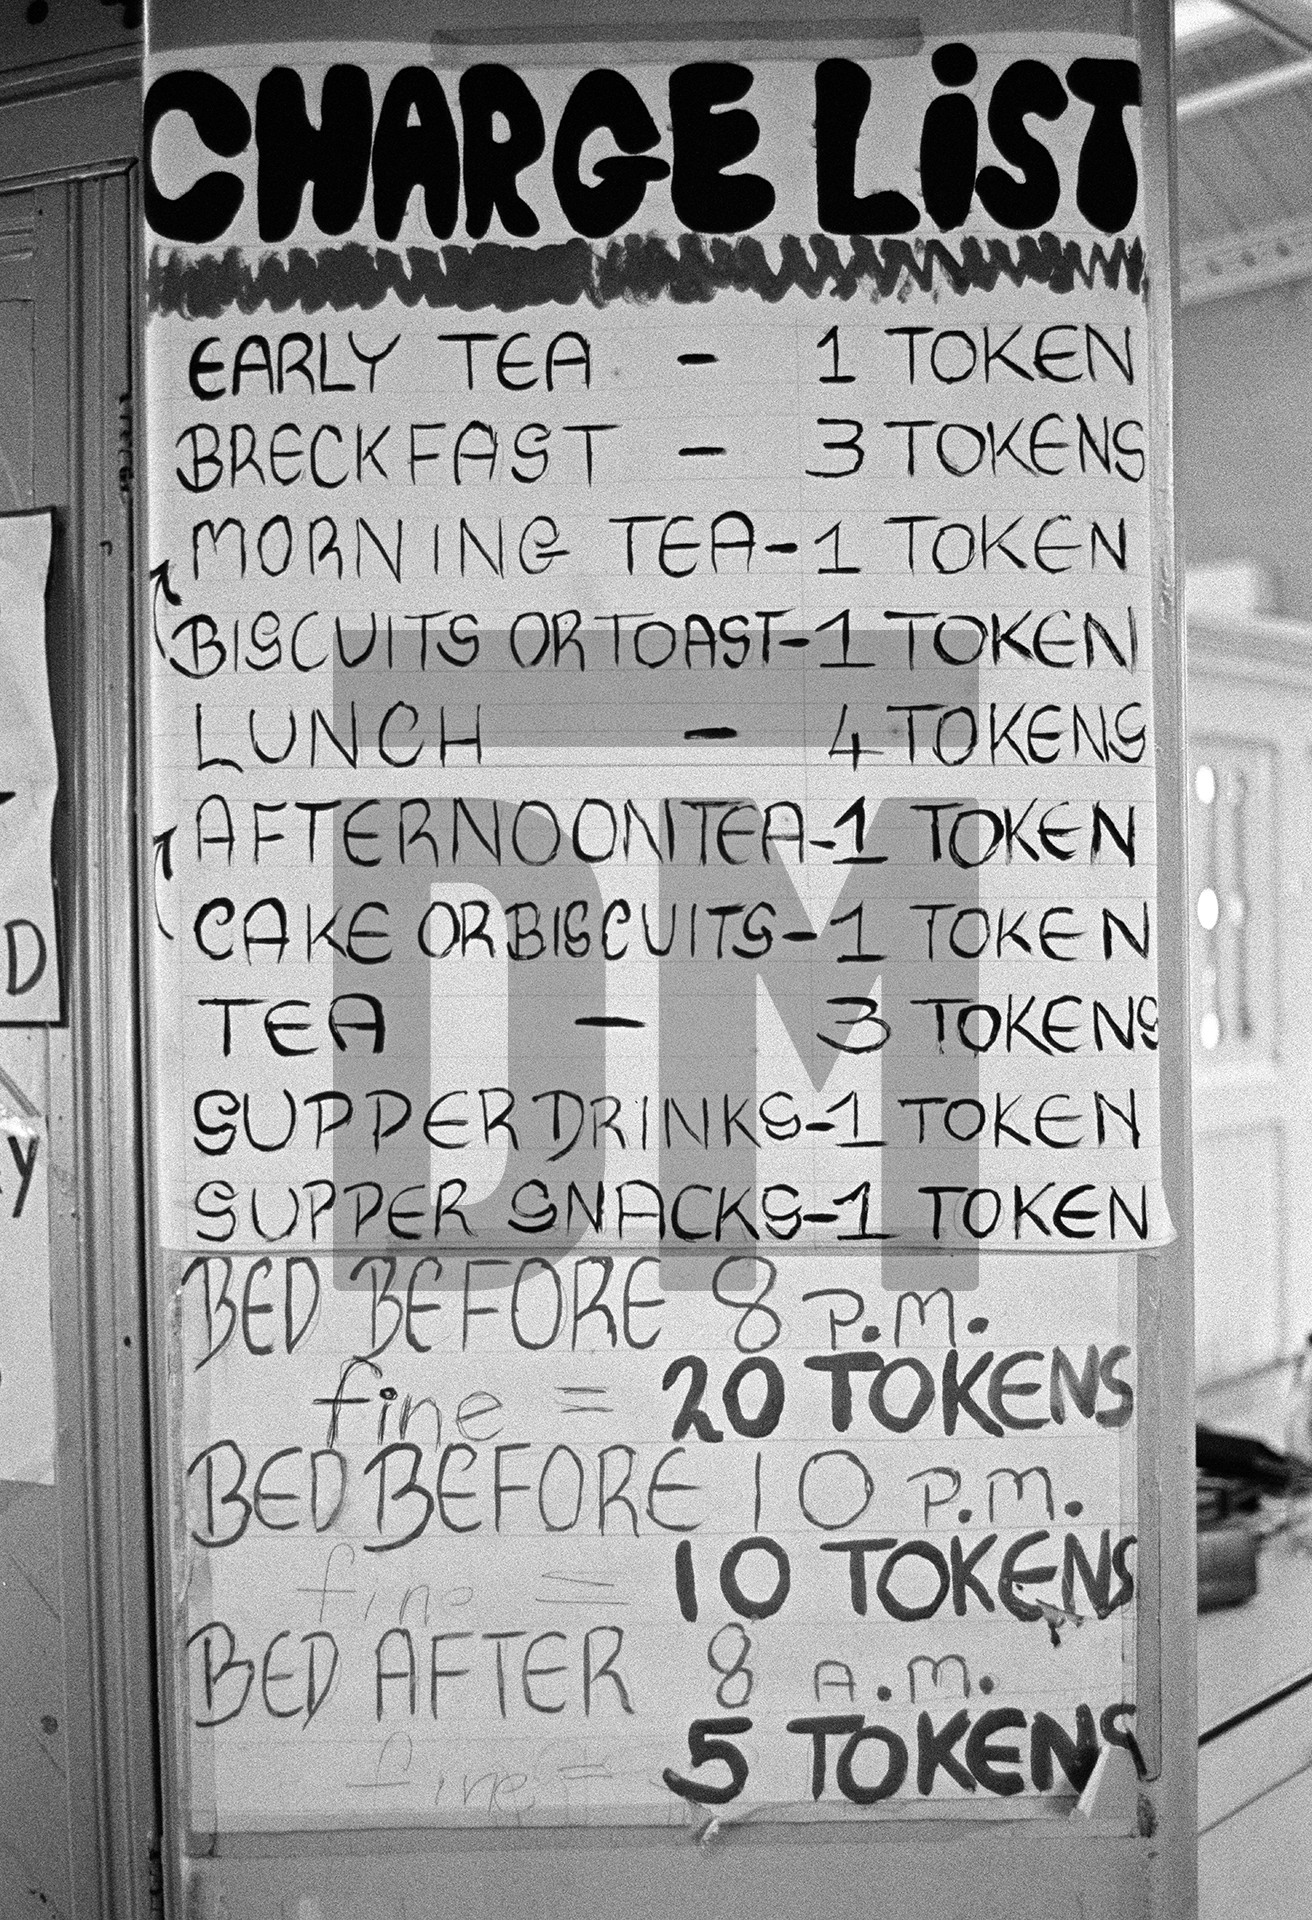 CHARGE LiST
EARLY TEA - 1 TOKEN
BRECKFAST - 3 TOKENS
MORNING TEA-1 TOKEN
BISCUITS OR TOAST-1 TOKEN
LUNCH - 4 TOKENS
AFTERNOON TEA-1 TOKEN
CAKE OR BISCUITS-1 TOKEN
TEA - 3 TOKENS
SUPPER DRINKS-1 TOKEN
SUPPER SNACKS-1 TOKEN
BED BEFORE 8 P.M.
fine = 20 TOKENS
BED BEFORE 10 P.M.
fine = 10 TOKENS
BED AFTER 8 A.M.
fine = 5 TOKENS
D
y
DM